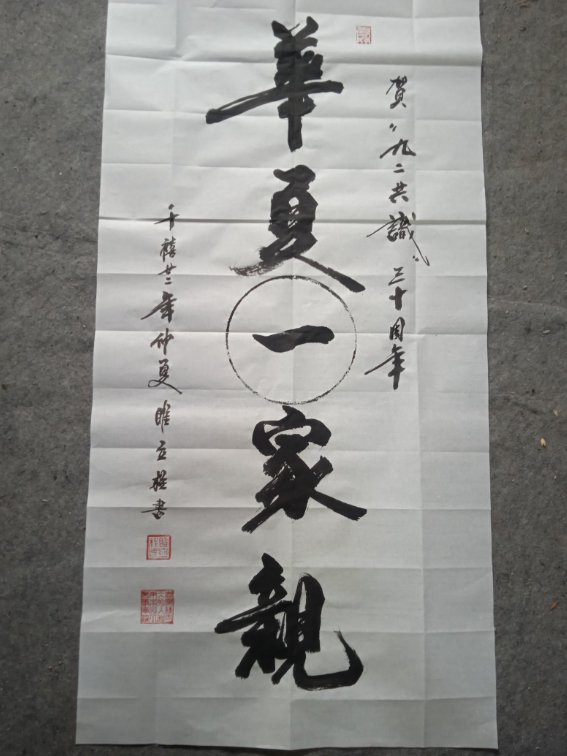 賀“九二共識”三十周年
華夏一家親
千禧廿二年仲夏睢立書